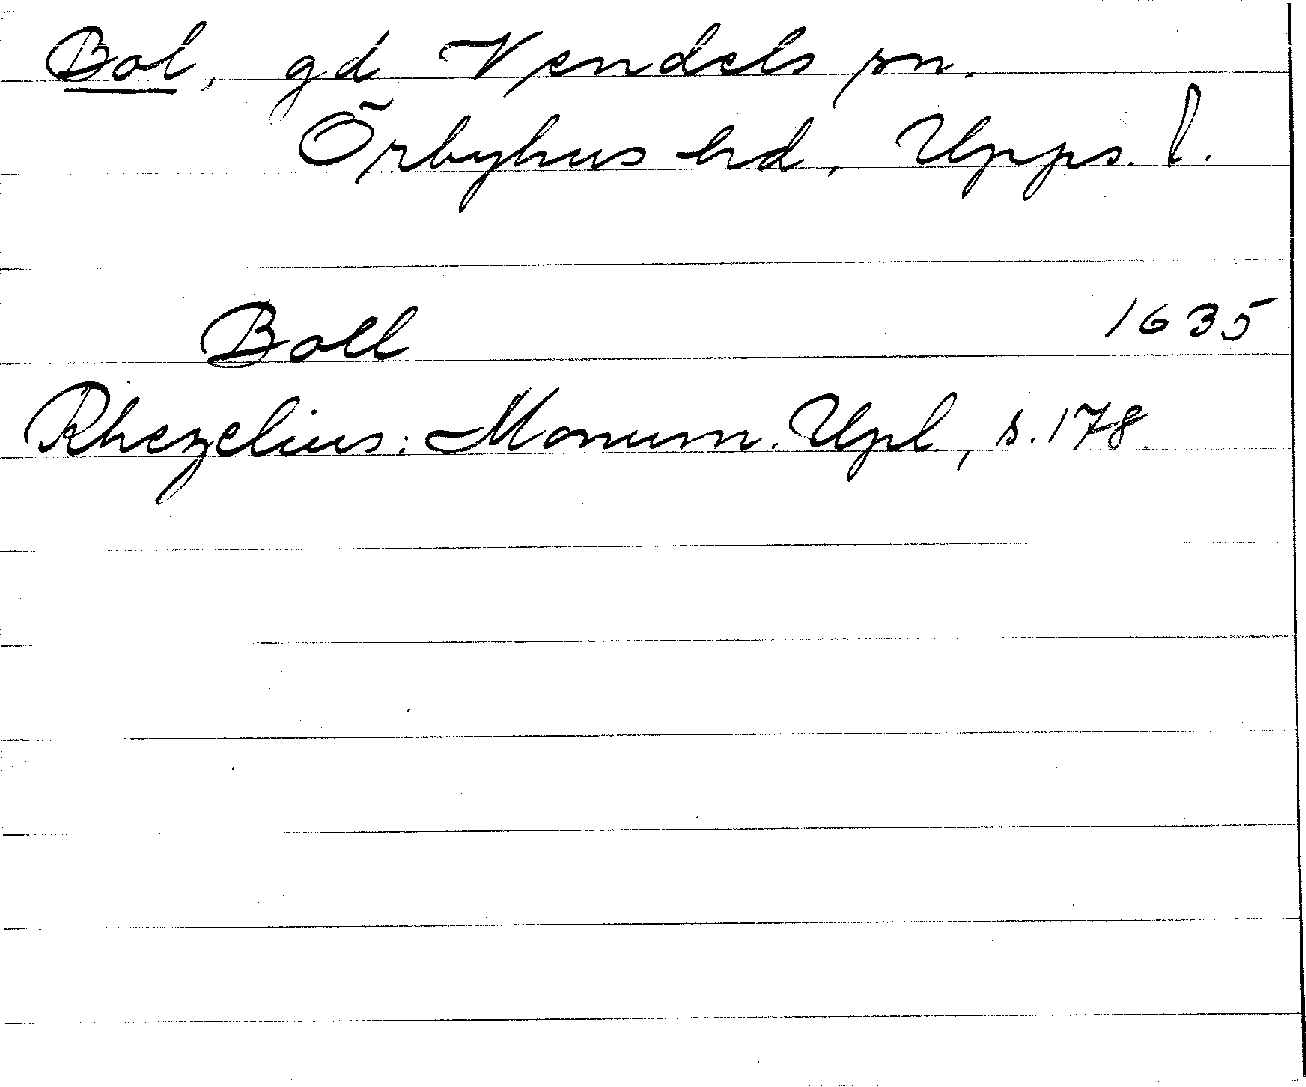 Bol, gd Vendels sn.
Örbyhus hd, Upps. l.
Boll 1635
Rhezelius: Monum. Upl, s. 178.